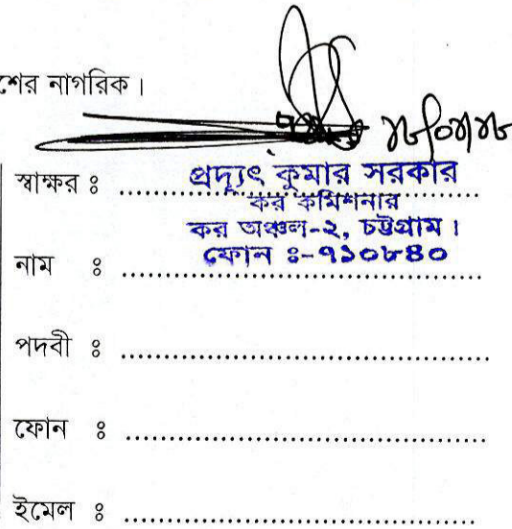 শের নাগরিক।
স্বাক্ষর ঃ ........................................
প্রদ্যুৎ কুমার সরকার
কর কমিশনার
কর অঞ্চল-২, চট্টগ্রাম।
ফোন ঃ-৭১০৮৪০
নাম ঃ ........................................
পদবী ঃ ........................................
ফোন ঃ ........................................
ইমেল ঃ ........................................